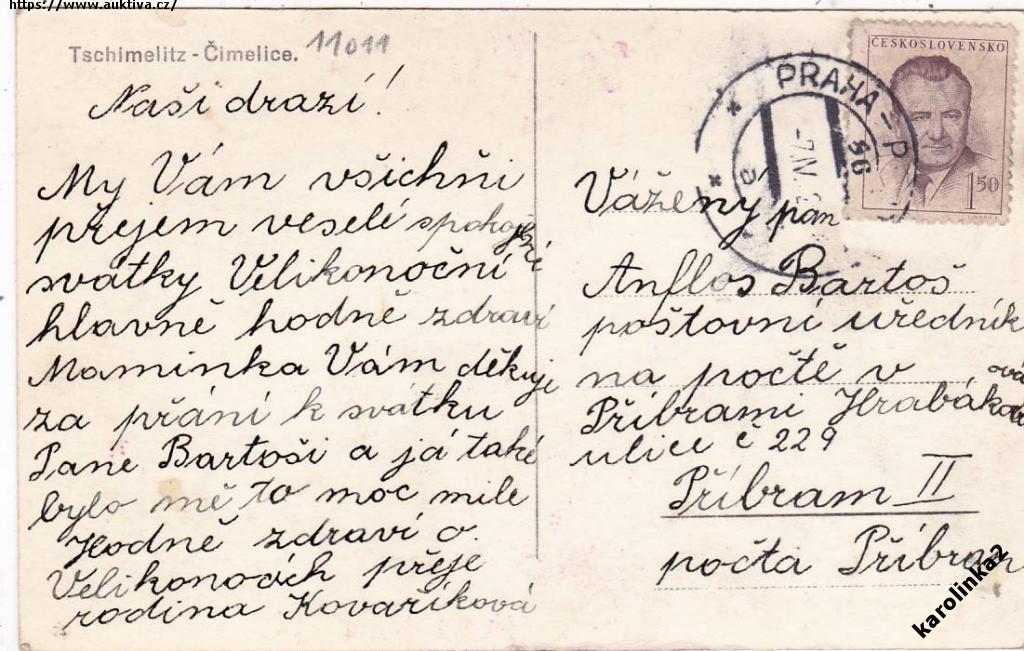 https://www.auktiva.cz/
Tschimelitz - Čimelice.
11011
Naši drazí!
My Vám všichni
přejem veselé spokojné
svátky Velikonoční
hlavně hodně zdraví
Maminka Vám děkuje
za přání k svátku
Pane Bartoši a já také
bylo mě to moc milé
Hodně zdraví o
Velikonocích přeje
rodina Kovaříková
ČESKOSLOVENSKO
1.50
PRAHA
56
-7.IV
a
Vážený pán
Anflos Bartoš
poštovní úředník
na počtě v
Příbrami Hrabákova
ulice č 229
Příbram II
počta Příbram
karolinka2